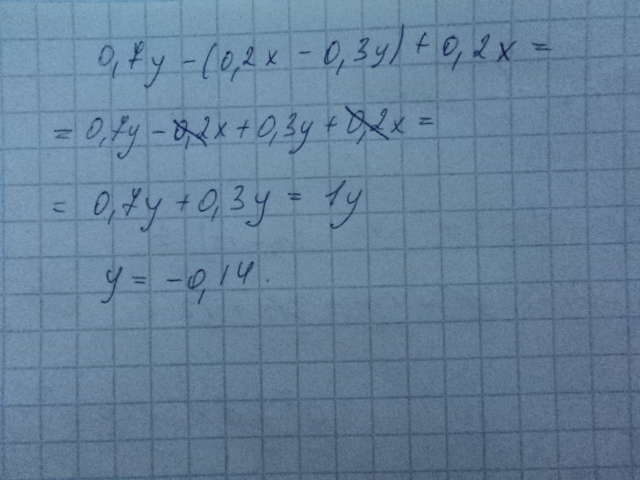 0,7y - (0,2x - 0,3y) + 0,2x =
= 0,7y - 0,2x + 0,3y + 0,2x =
= 0,7y + 0,3y = 1y
y = -0,14.